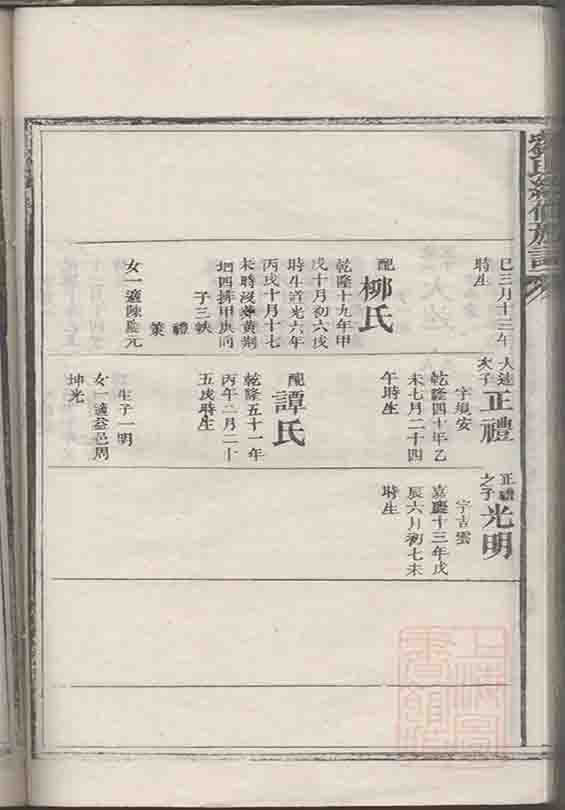 巳三月十三午
時生
配柳氏
乾隆十九年甲
戌十月初六戌
時生道光六年
丙戌十月十七
未時歿葬黄荆
坰四排甲庚向
子三
禮
策
女一適陳
元
人達
次子
正禮
字規安
乾隆四十年乙
未七月二十四
午時生
配譚氏
乾隆五十一年
丙午二月二十
五戌時生
生子一明
女一適益邑周
坤光
正禮
之子
光明
字吉雲
嘉慶十三年戊
辰六月初七未
時生